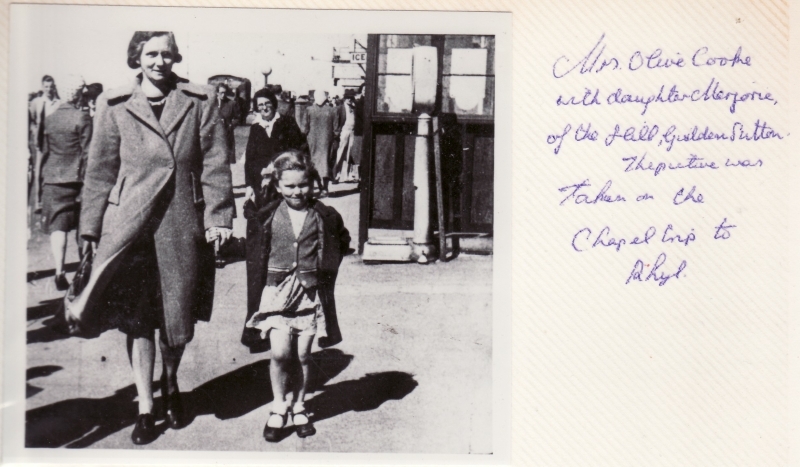 ICE
Mrs. Olive Cooke
with daughter Marjorie,
of the Hill, Guilden Sutton.
The picture was
taken on the
Chapel trip to
Rhyl.